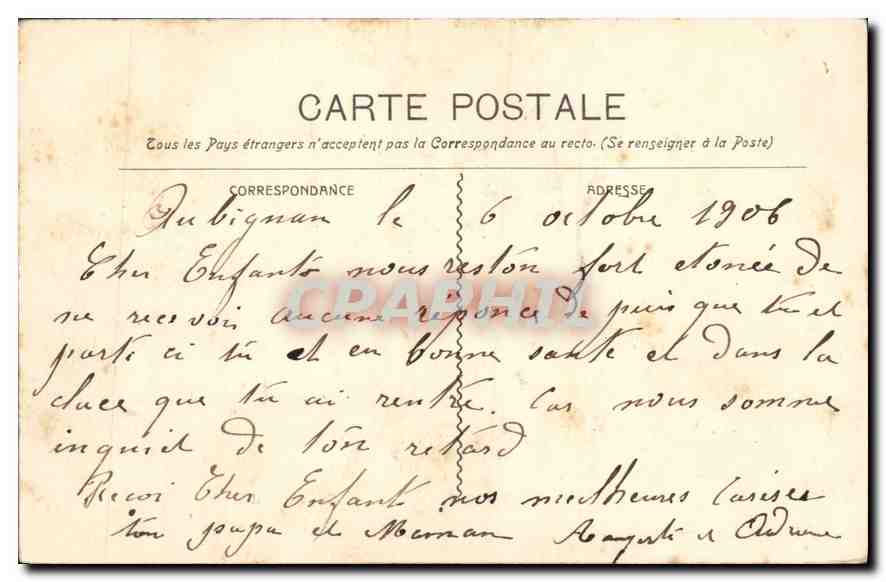 CARTE POSTALE
Tous les Pays étrangers n'acceptent pas la Correspondance au recto. (Se renseigner à la Poste)
CORRESPONDANCE ADRESSE
Aubignan le 6 octobre 1906
Cher Enfants nous reston fort etonée de
ne recevoir aucune réponce de puis que tu et
parti ci tu et en bonne sante et dans la
clace que tu ai rentré. Car nous somme
inquiet de ton retard
Recoi Cher Enfant nos meilheures Carises
ton papa et Maman
CPARHII